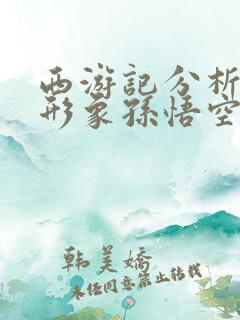 西游記分析
形象孫悟空
韩美嬌
未经同意禁止转载